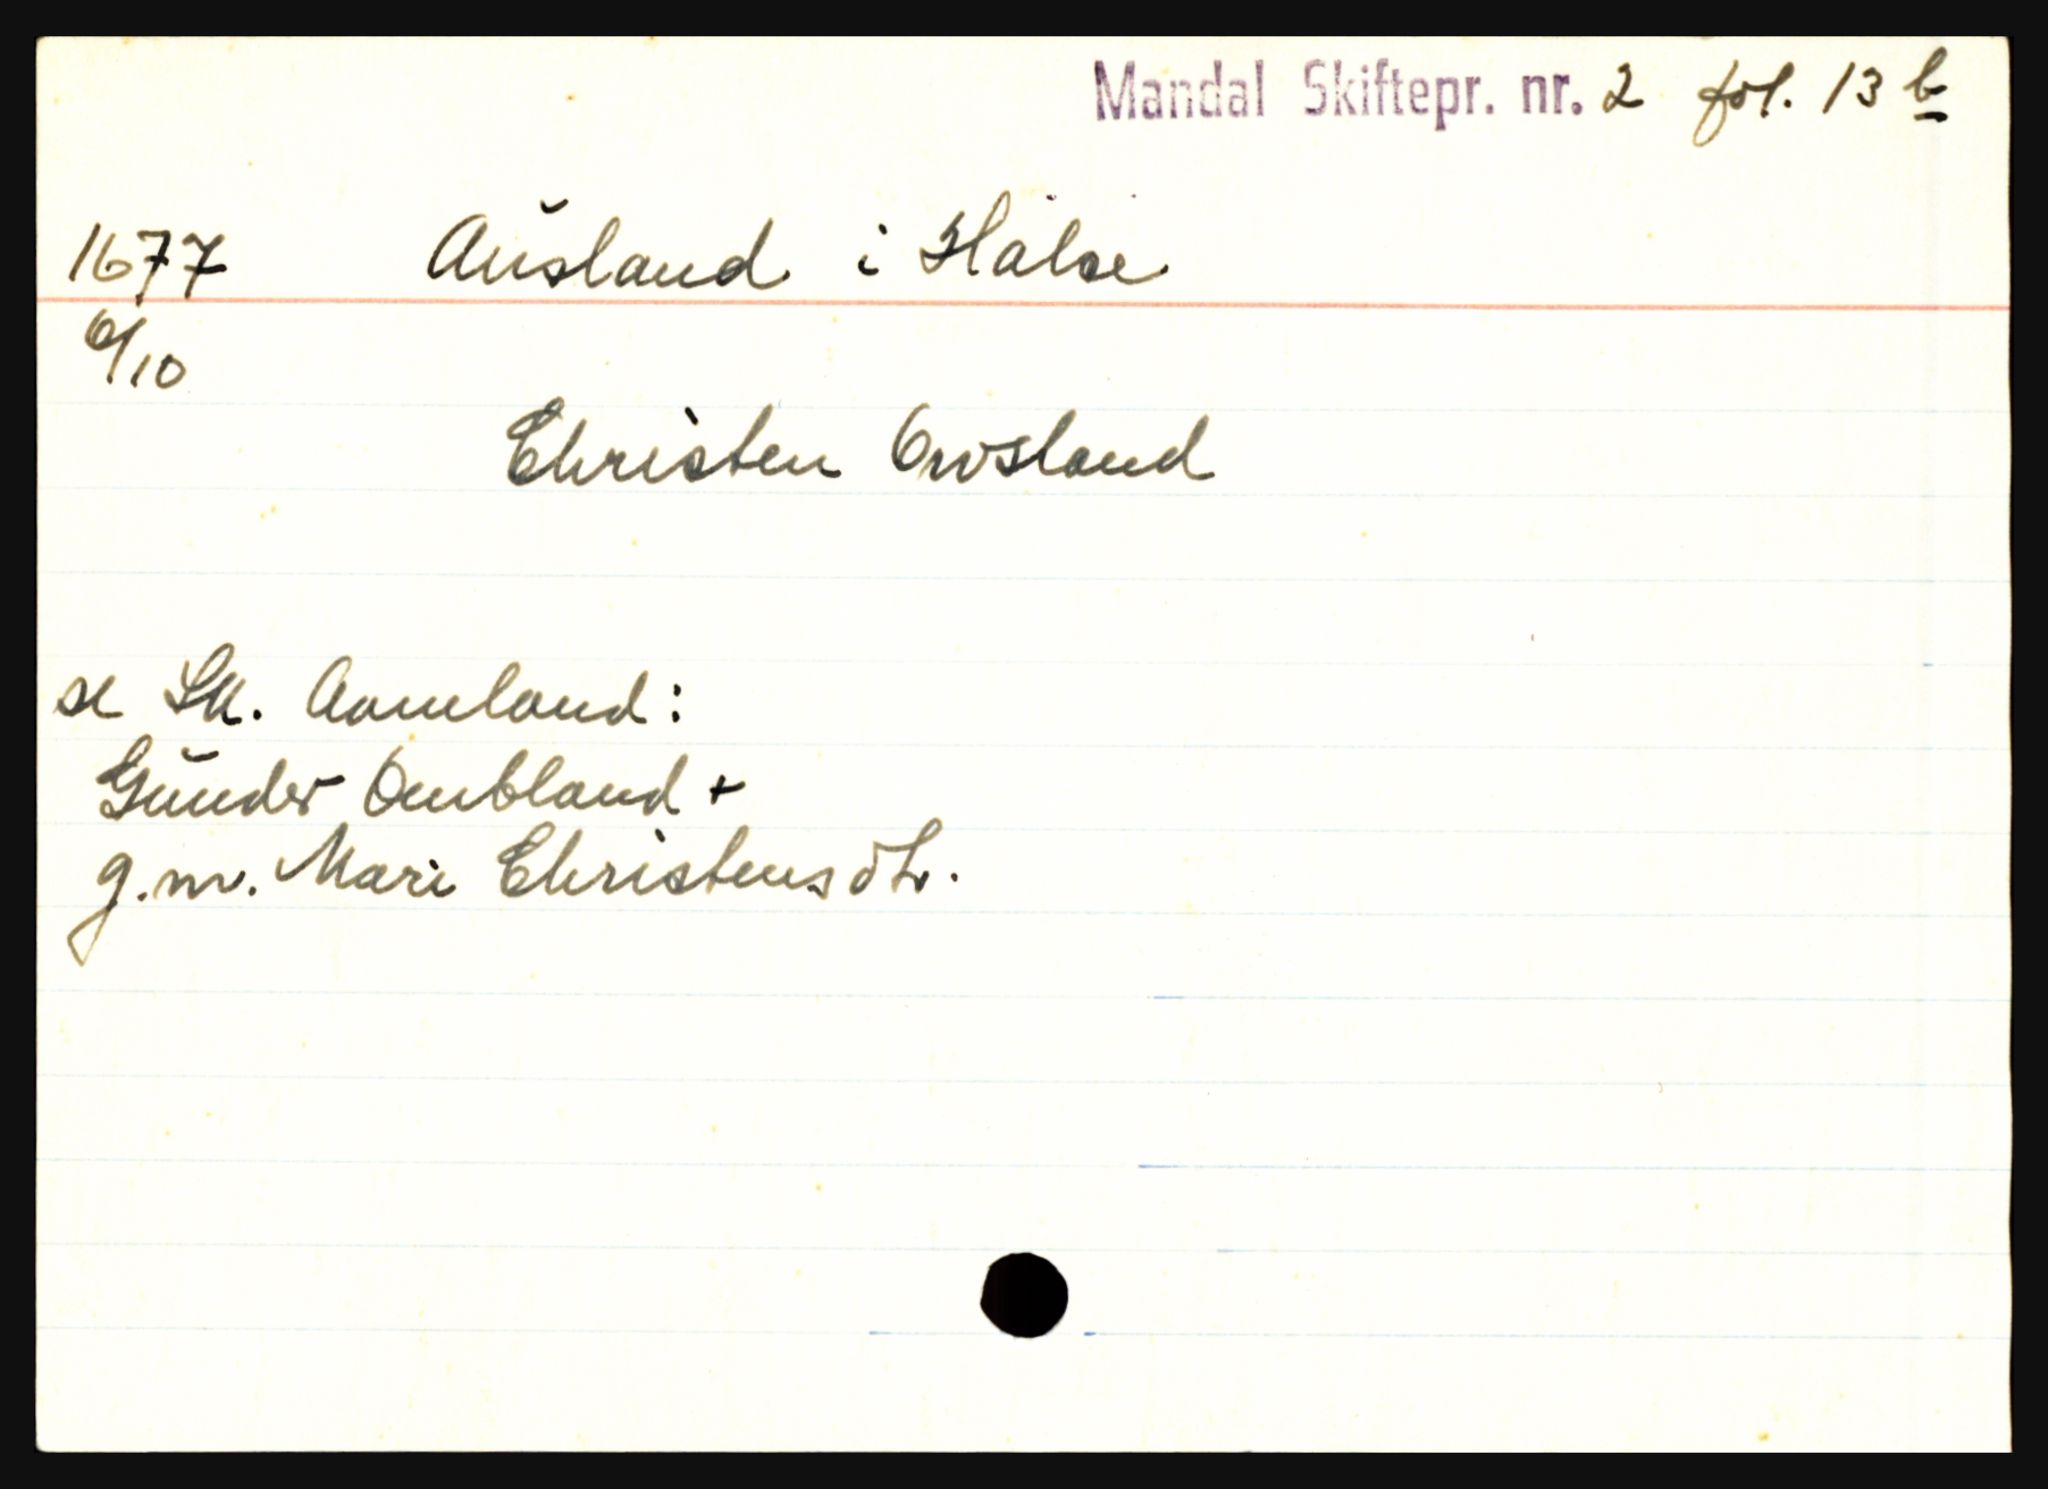 Mandal Skiftepr. nr. 2 fol. 13 b
1677 Ausland i Halse
6/10
Christen Owsland
se Sk. Aamland:
Gunder Ombland +
g.m. Mari Christensdtr.